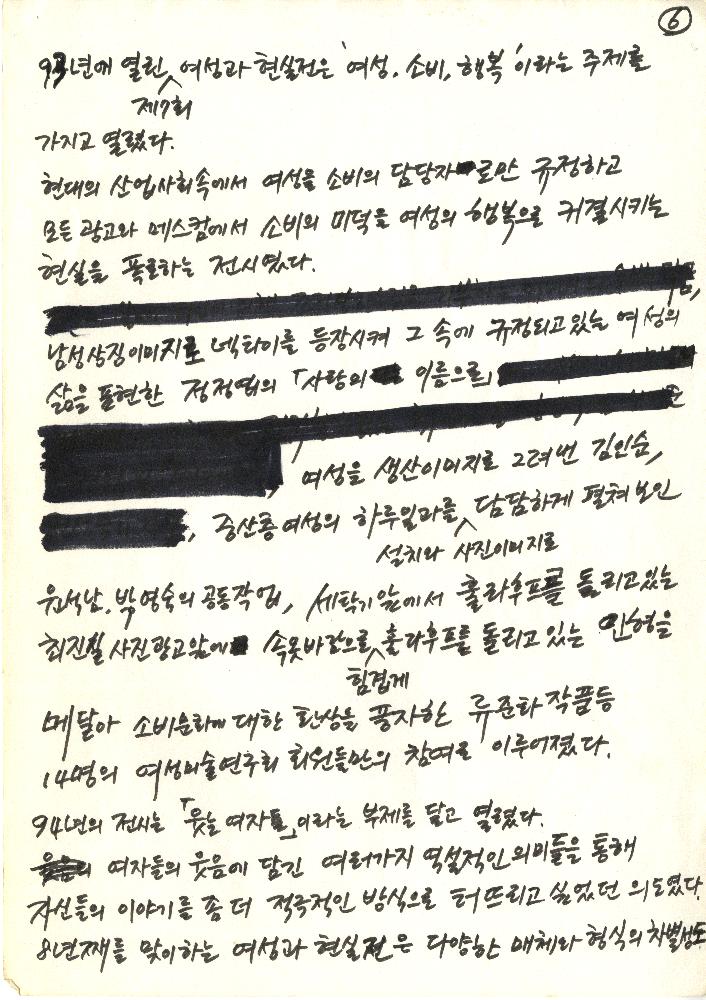 6
93년에 열린 여성과 현실전은 '여성, 소비, 행복'이라는 주제를
제7회
가지고 열렸다.
현대의 산업사회속에서 여성을 소비의 담당자로만 규정하고
모든 광고와 메스컴에서 소비의 미덕을 여성의 행복으로 귀결시키는
현실을 폭로하는 전시였다.
남성상징이미지로 넥타이를 등장시켜 그 속에 규정되고있는 여성의
삶을 표현한 정정엽의 「사랑의 이름으로」
여성을 생산이미지로 그려낸 김인순,
, 중산층여성의 하루일과를 담담하게 펼쳐보인
설치와 사진이미지로
원석남, 박영숙의 공동작업, 세탁기앞에서 훌라후프를 돌리고있는
최진실 사진광고앞에 속옷바람으로 훌라후프를 돌리고 있는 인형을
힘겹게
메달아 소비문화에 대한 환상을 풍자한 류준화 작품등
14명의 여성미술연구회 회원들만의 참여로 이루어졌다.
94년의 전시는 「웃는 여자들」이라는 부제를 달고 열렸다.
여자들의 웃음에 담긴 여러가지 역설적인 의미들을 통해
자신들의 이야기를 좀 더 적극적인 방식으로 터뜨리고 싶었던 의도였다.
8년째를 맞이하는 여성과 현실전은 다양한 매체와 형식의 차별성도